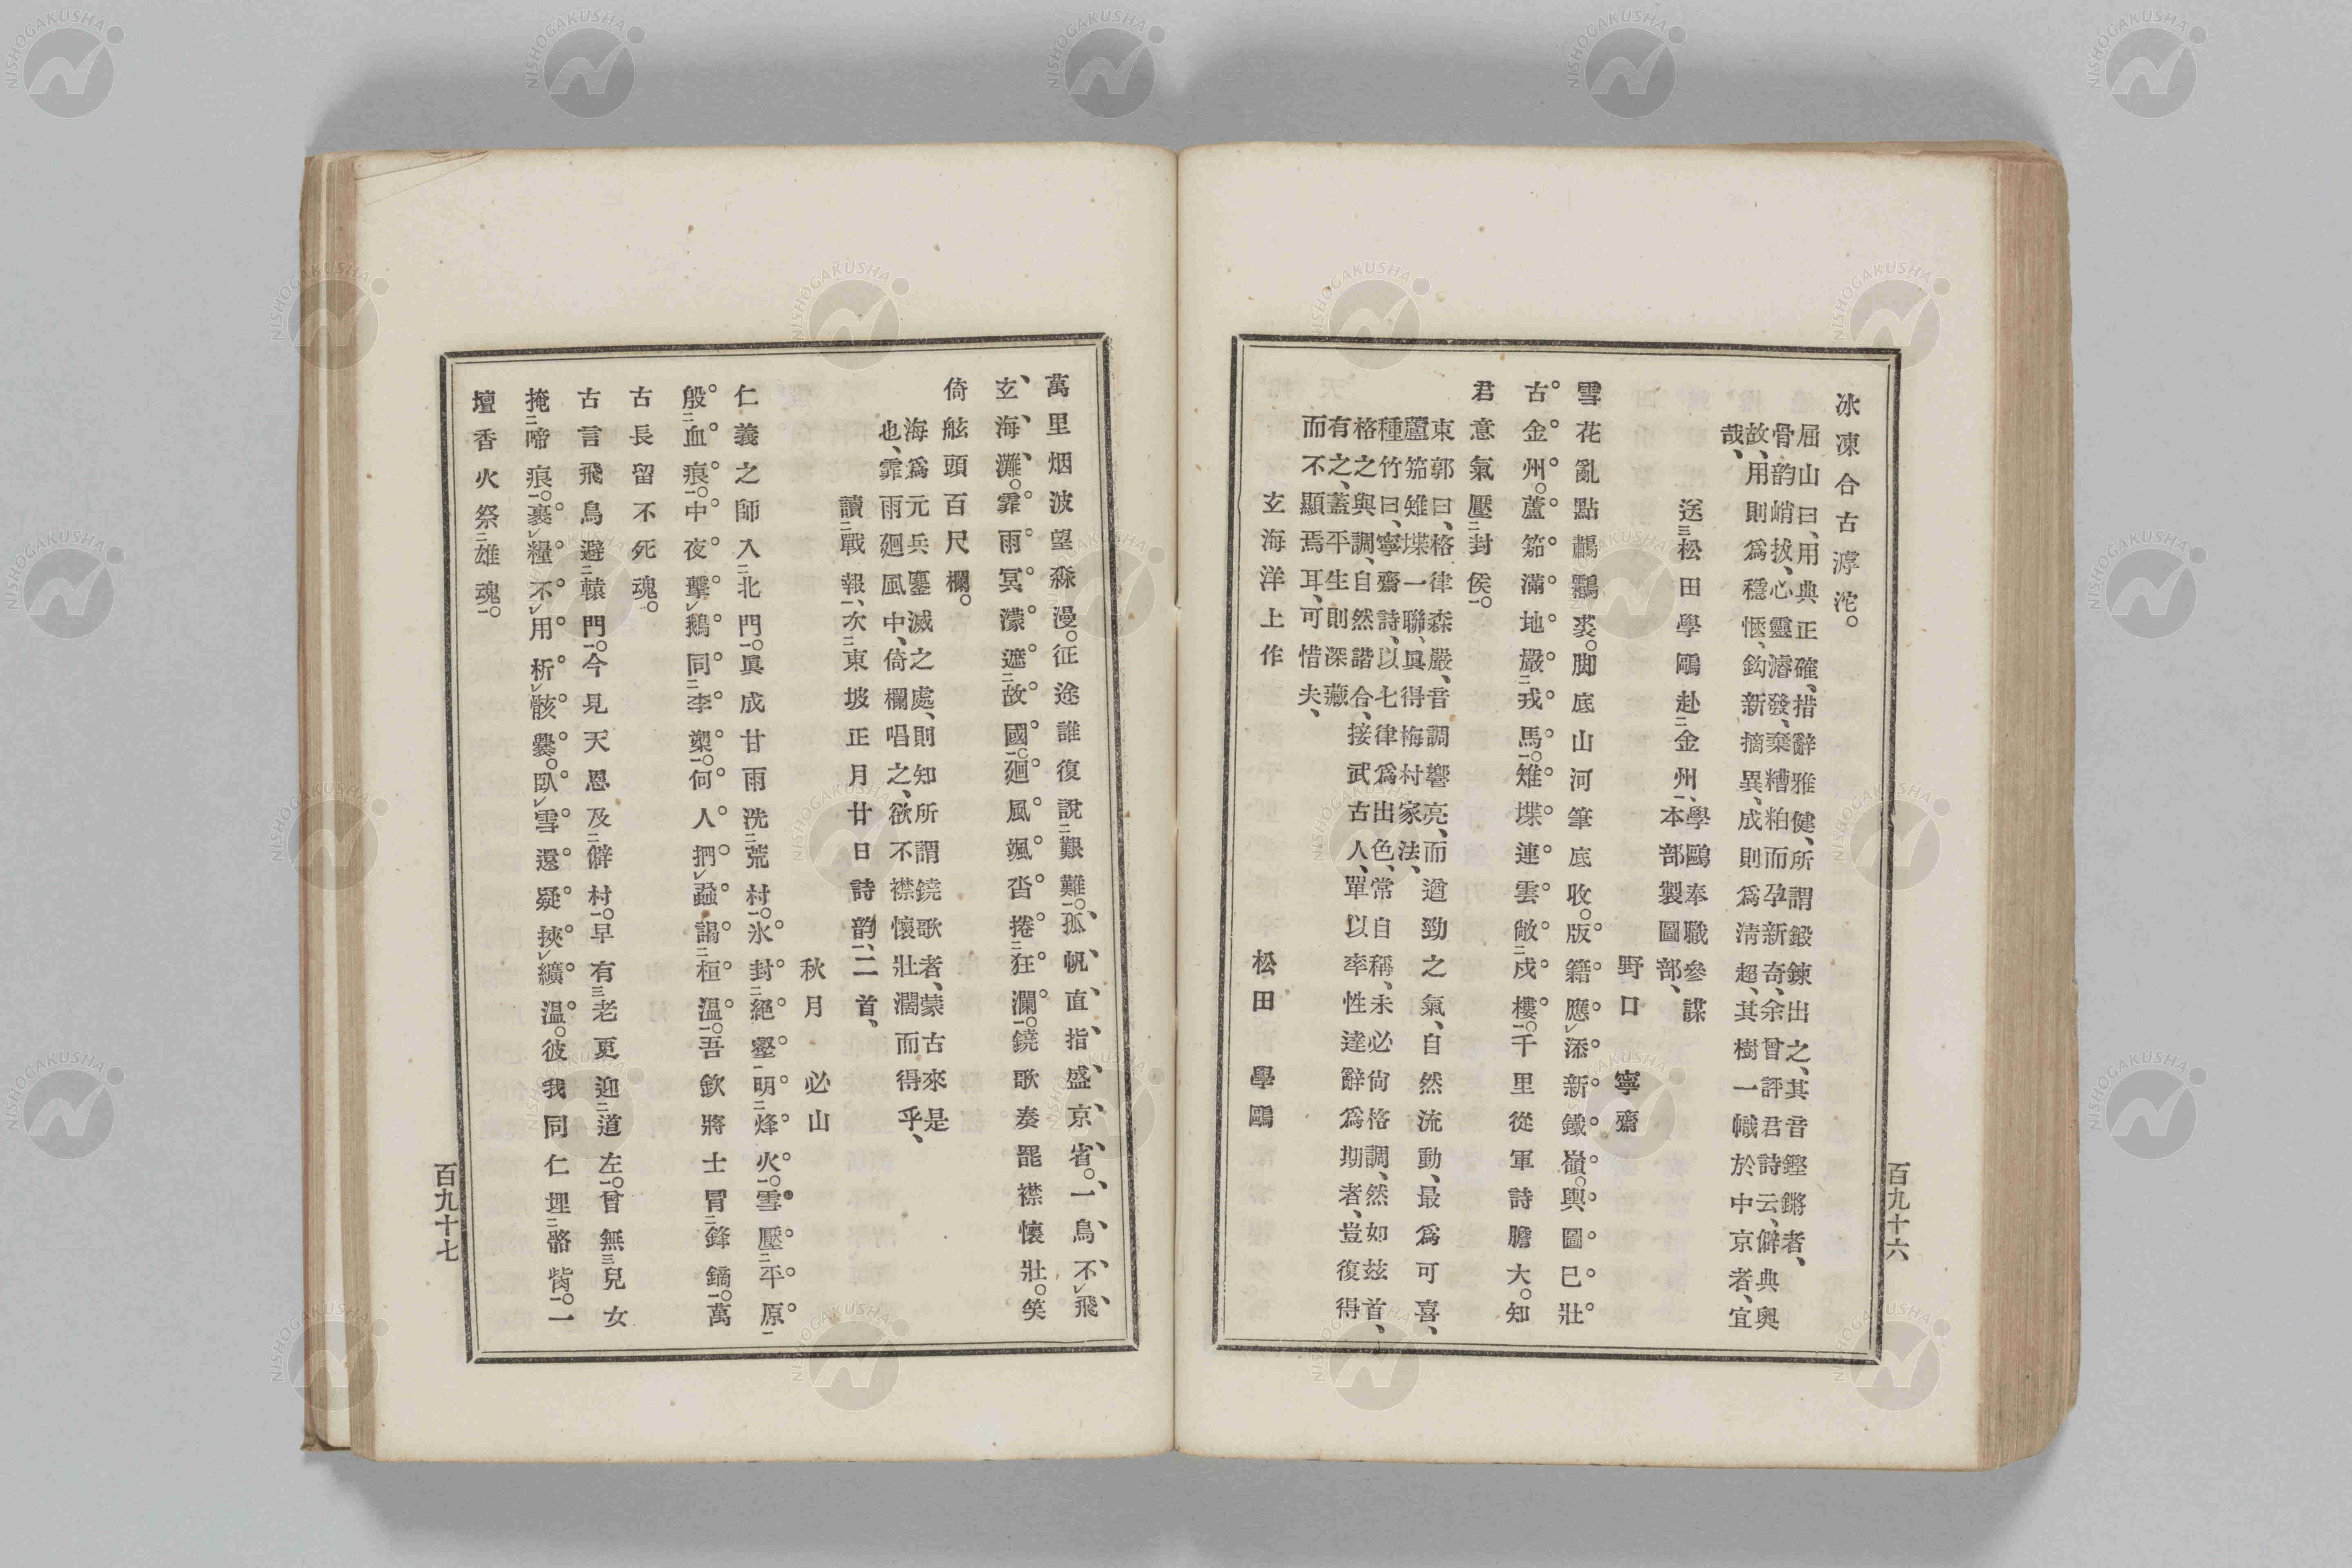 冰凍合古滹沱。
屈山曰、用典正確、措辭雅健、所謂鍛鍊出之、其音鏗鏘者、
骨韵峭拔、心靈濬發、棄糟粕而孕新奇、余曾評君詩云、僻典奧
故、用則爲穩愜、鈎新摘異、成則爲淸超、其樹一幟於中京者、宜
哉、
送三松田學鷗赴二金州一、學鷗奉職參謀
本部製圖部、
野口寧齋
雪花亂點鸘鸘裘。脚底山河筆底收。版籍應レ添新鐵嶺。輿圖已壯
古金州。蘆笳滿地嚴二戎馬一。雉堞連雲敞二戍樓一。千里從軍詩膽大。知
君意氣壓二封侯一。
東郭曰、格律森嚴、音調響亮、而遒勁之氣、自然流動、最爲可喜、
蘆笳雉堞一聯、眞得梅村家法、
種竹曰、寧齋詩、以七律爲出色、常自稱、未必尙格調、然如玆首、
格之與調、自然諧合、接武古人、單以率性達辭爲期者、豈復得
有之、蓋平生則深藏
而不顯焉耳、可惜夫、
玄海洋上作
松田學鷗
百九十六
萬里烟波望森漫。征途誰復說二艱難一。孤帆直指盛京省。一鳥不レ飛
玄海灘。霏雨冥濛遮二故國一。廻風颯沓捲二狂瀾一。鐃歌奏罷襟懷壯。笑
倚舷頭百尺欄。
海爲元兵鏖滅之處、則知所謂鐃歌者、蒙古來是
也、霏雨廻風中、倚欄唱之、欲不襟懷壯濶而得乎、
讀二戰報一、次二東坡正月廿日詩韵一、二首、
秋月必山
仁義之師入二北門一。眞成甘雨洗二荒村一。氷封二絕壑一明二烽火一。雪壓二平原一
殷二血痕一。中夜擊レ鵝同二李塑一。何人捫レ蝨謁二桓溫一。吾欽將士冒二鋒鏑一。萬
古長留不死魂。
古言飛鳥避二轅門一。今見天恩及二僻村一。早有三老更迎二道左一。曾無三兒女
掩二啼痕一。裹レ糧不レ用析レ骸爨。臥レ雪還疑挾レ纊溫。彼我同仁埋二骼胔一。一
壇香火祭二雄魂一。
百九十七